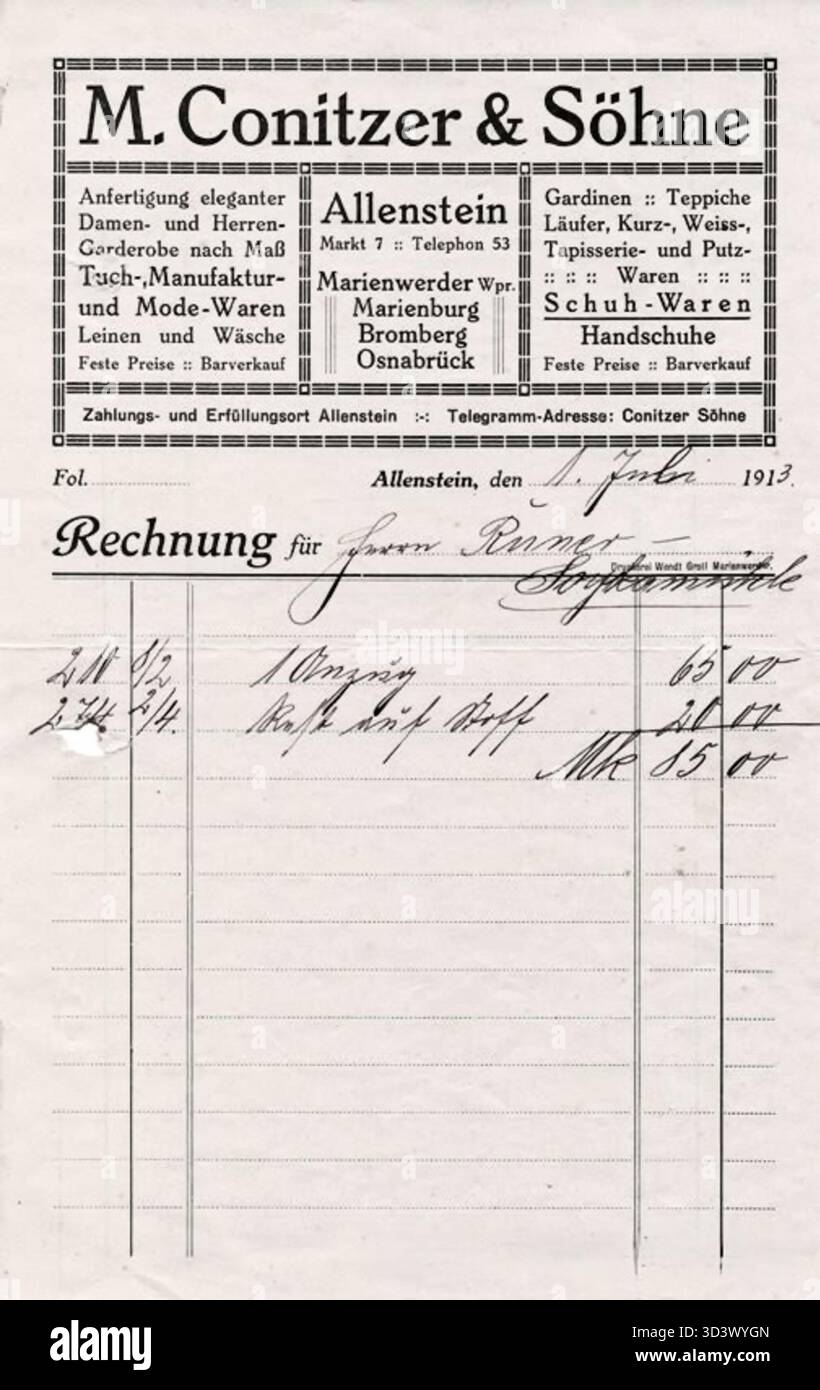 M. Conitzer & Söhne
Anfertigung eleganter
Damen- und Herren-
Garderobe nach Maß
Tuch-, Manufaktur-
und Mode-Waren
Leinen und Wäsche
Feste Preise :: Barverkauf
Allenstein
Markt 7 :: Telephon 53
Marienwerder Wpr.
Marienburg
Bromberg
Osnabrück
Gardinen :: Teppiche
Läufer, Kurz-, Weiss-,
Tapisserie- und Putz-
:: :: :: Waren :: :: ::
Schuh-Waren
Handschuhe
Feste Preise :: Barverkauf
Zahlungs- und Erfüllungsort Allenstein :-: Telegramm-Adresse: Conitzer Söhne
Fol. Allenstein, den 1. Juli 1913.
Rechnung für Herrn
Druckerei Wendt Groll Marienwerder.
210 8/2 1 Anzug 65 00
274 2/4. Rest auf Stoff 20 00
Mk 85 00
alamy
Image ID: 3D3WYGN
www.alamy.com